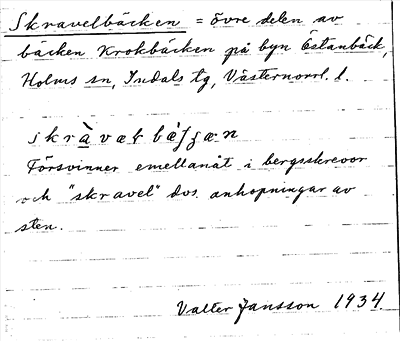 Skravelbäcken = övre delen av
bäcken Krokbäcken på byn Östanbäck,
Holms sn, Indals tg, Västernorrl. l.
skràvæł bä̀ʃæn
Försvinner emellanåt i bergsskrevor
och "skravel" dvs. anhopningar av
sten.
Valter Jansson 1934